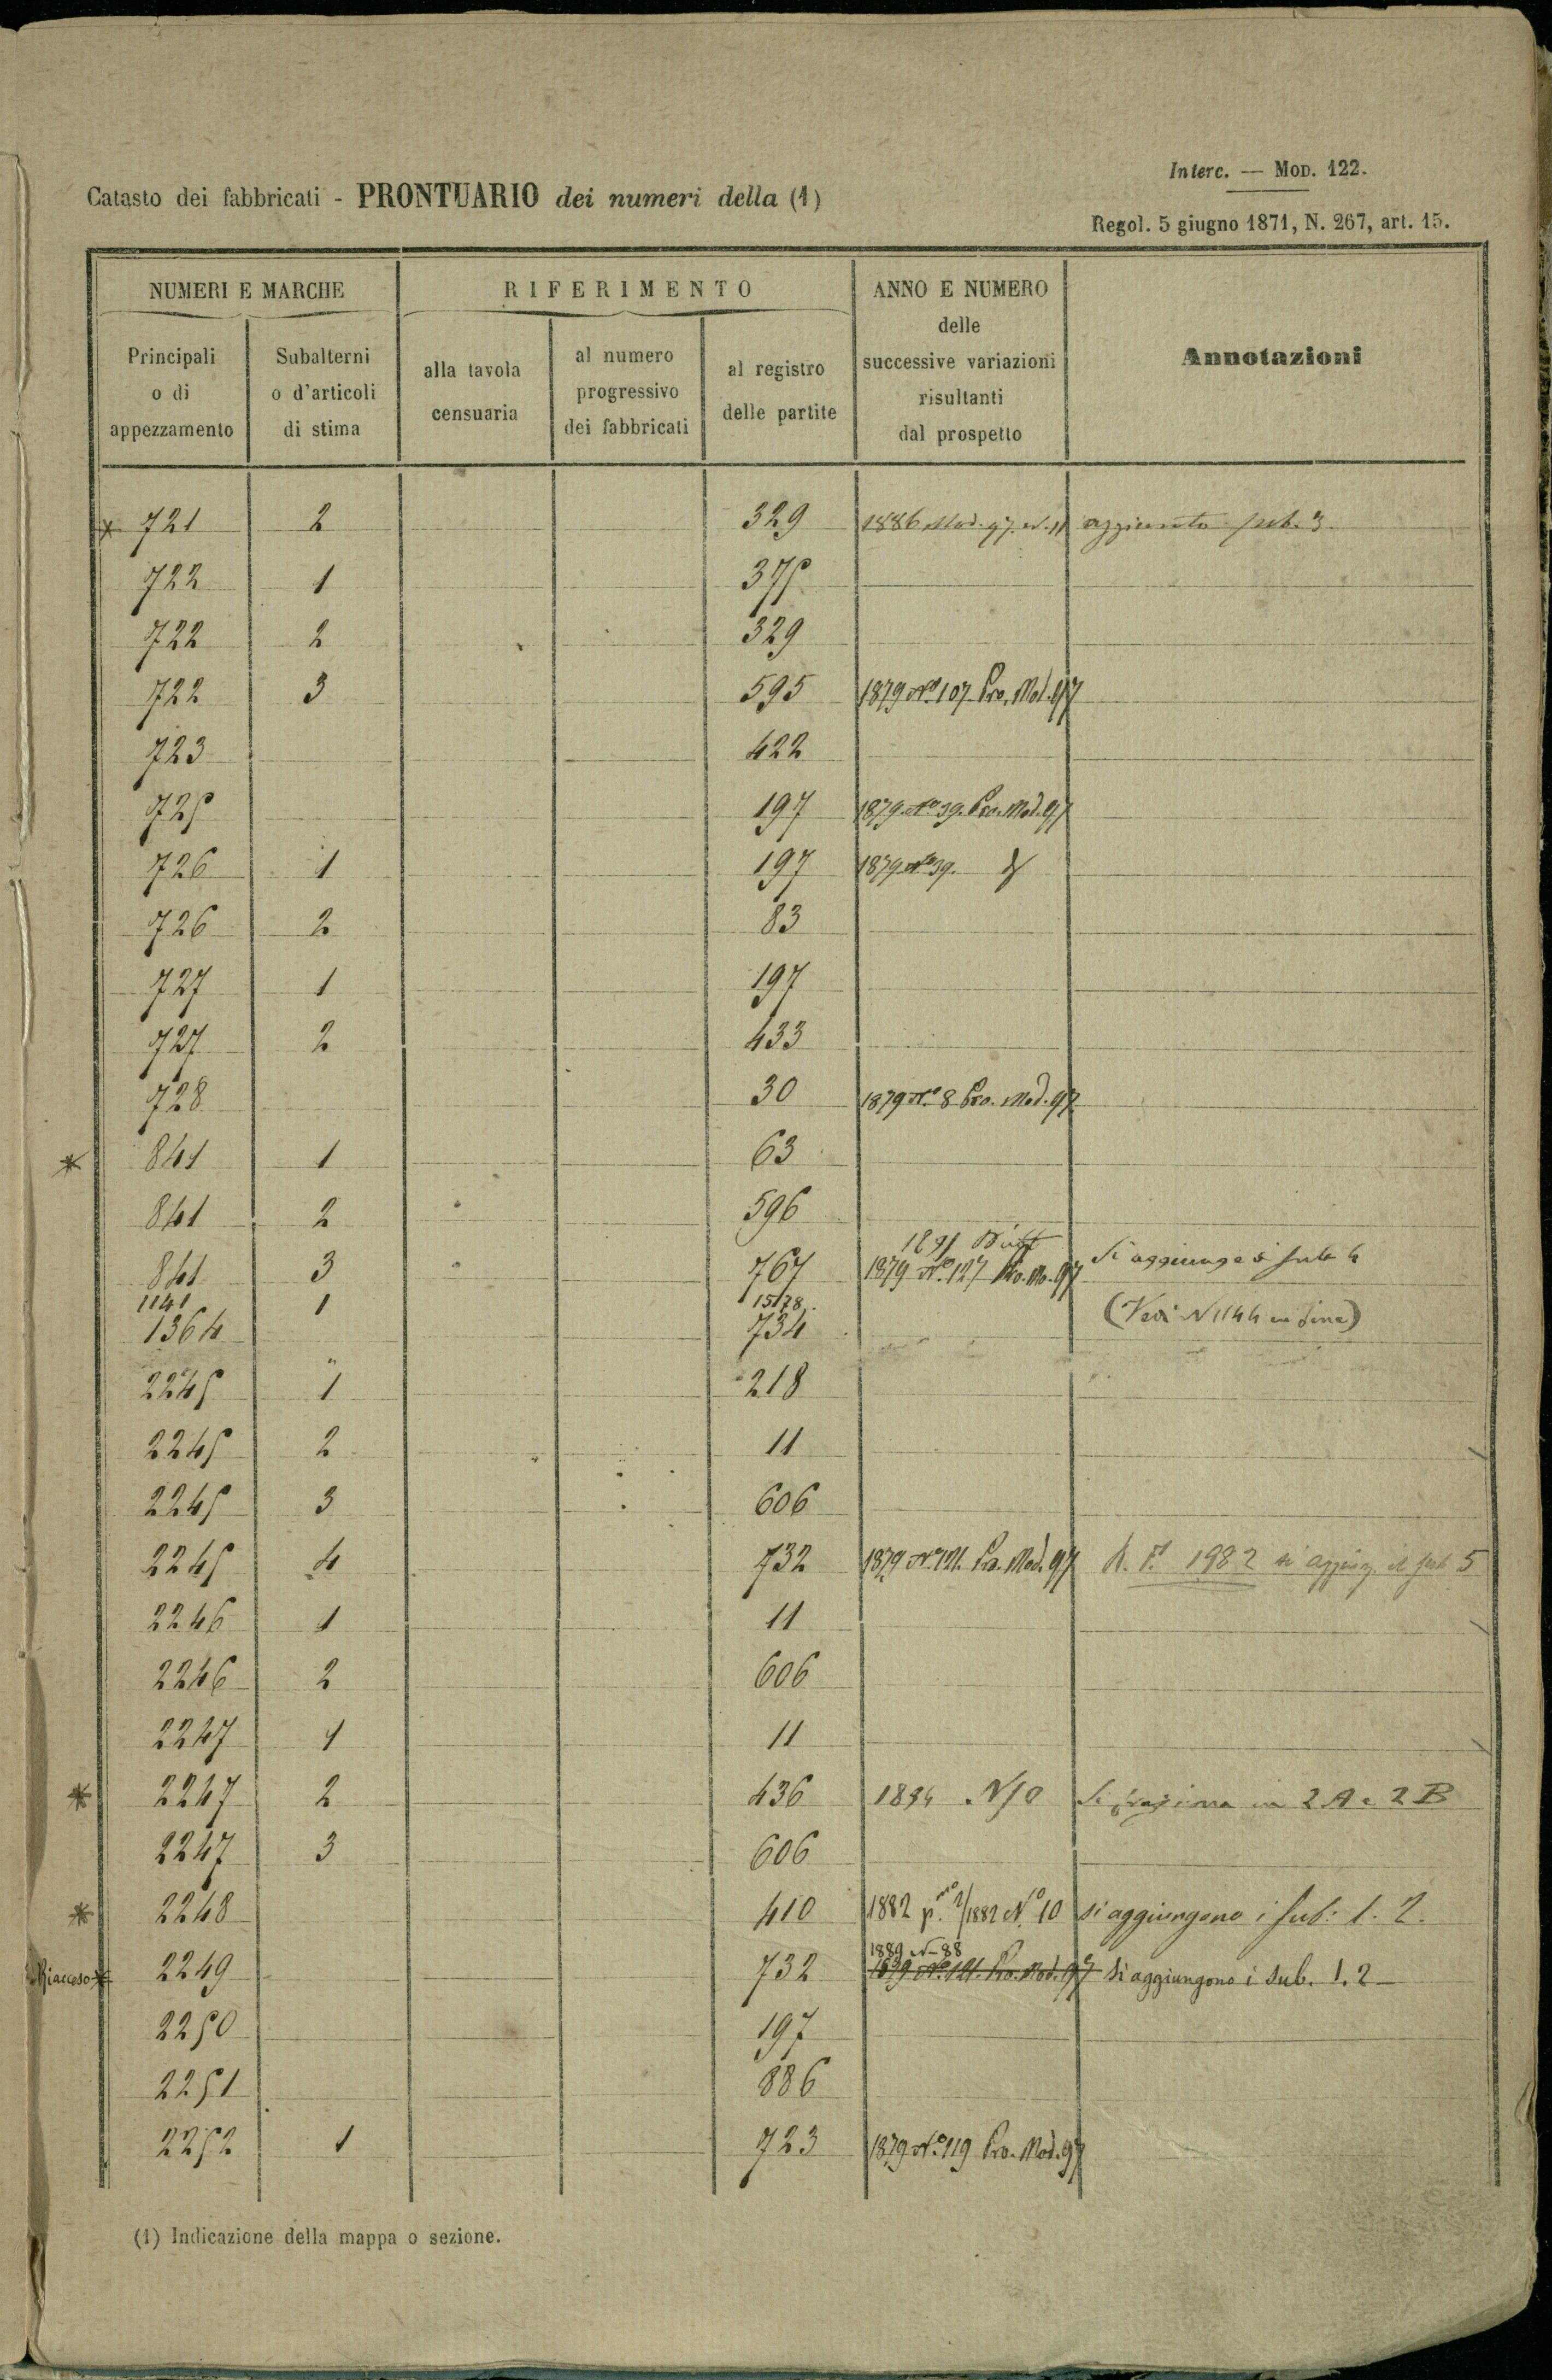 Interc. — Mod. 122.
Catasto dei fabbricati - PRONTUARIO dei numeri della (1)
Regol. 5 giugno 1871, N. 267, art. 15.
NUMERI E MARCHE RIFERIMENTO ANNO E NUMERO delle successive variazioni risultanti dal prospetto Annotazioni
Principali o di appezzamento Subalterni o d'articoli di stima alla tavola censuaria al numero progressivo dei fabbricati al registro delle partite
* 721 2 329 1886 Mod. 97. N. 11 aggiunto sub. 3
722 1 375
722 2 329
722 3 595 1879 No. 107. Pro. Mod. 97
723 422
725 197 1879. No 39. Pro. Mod. 97
726 1 197 1879 No 39.
726 2 83
727 1 197
727 2 433
728 30 1879 No. 8 Pro. Mod. 97
* 841 1 63
841 2 596
841 3 767 1879 No. 127 Pro. Mo. 97 Si aggiunge sub 4
1141 1 15178
1364 734 (Vedi N 1144 in fine)
2245 1 218
2245 2 11
2245 3 606
2245 4 732 1879 No. 121. Pro. Mod. 97 1982 si aggiung. il sub 5
2246 1 11
2246 2 606
2247 1 11
* 2247 2 436 1894 N 10 Si fraziona in 2A e 2B
2247 3 606
* 2248 410 1882 No 10 si aggiungono i sub: 1. 2.
1889 N. 88
Riacceso * 2249 732 1879 No. 121. Pro. Mod. 97 Si aggiungono i sub. 1. 2 —
2250 197
2251 886
2252 1 723 1879 No. 119 Pro. Mod. 97
(1) Indicazione della mappa o sezione.